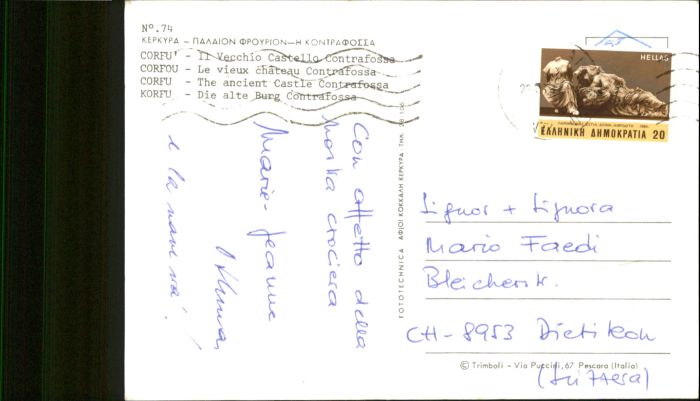 Nº.74
ΚΕΡΚΥΡΑ - ΠΑΛΑΙΟΝ ΦΡΟΥΡΙΟΝ—Η ΚΟΝΤΡΑΦΟΣΣΑ
CORFU' - Il Vecchio Castello Contrafossa
CORFOU - Le vieux château Contrafossa
CORFU - The ancient Castle Contrafossa
KORFU - Die alte Burg Contrafossa
HELLAS
ΕΛΛΗΝΙΚΗ ΔΗΜΟΚΡΑΤΙΑ 20
Con affetto della
nostra crociera
Marie-Jeanne
e la nave va!
FOTOTECHNICA ΑΦΙΟΙ ΚΟΚΚΑΛΗ ΚΕΡΚΥΡΑ ΤΗΛ 28 106
Signor + Signora
Mario Faedi
Bleicherstr.
CH-8953 Dietikon
(Svizzera)
© Trimboli - Via Puccini, 67 Pescara (Italia)